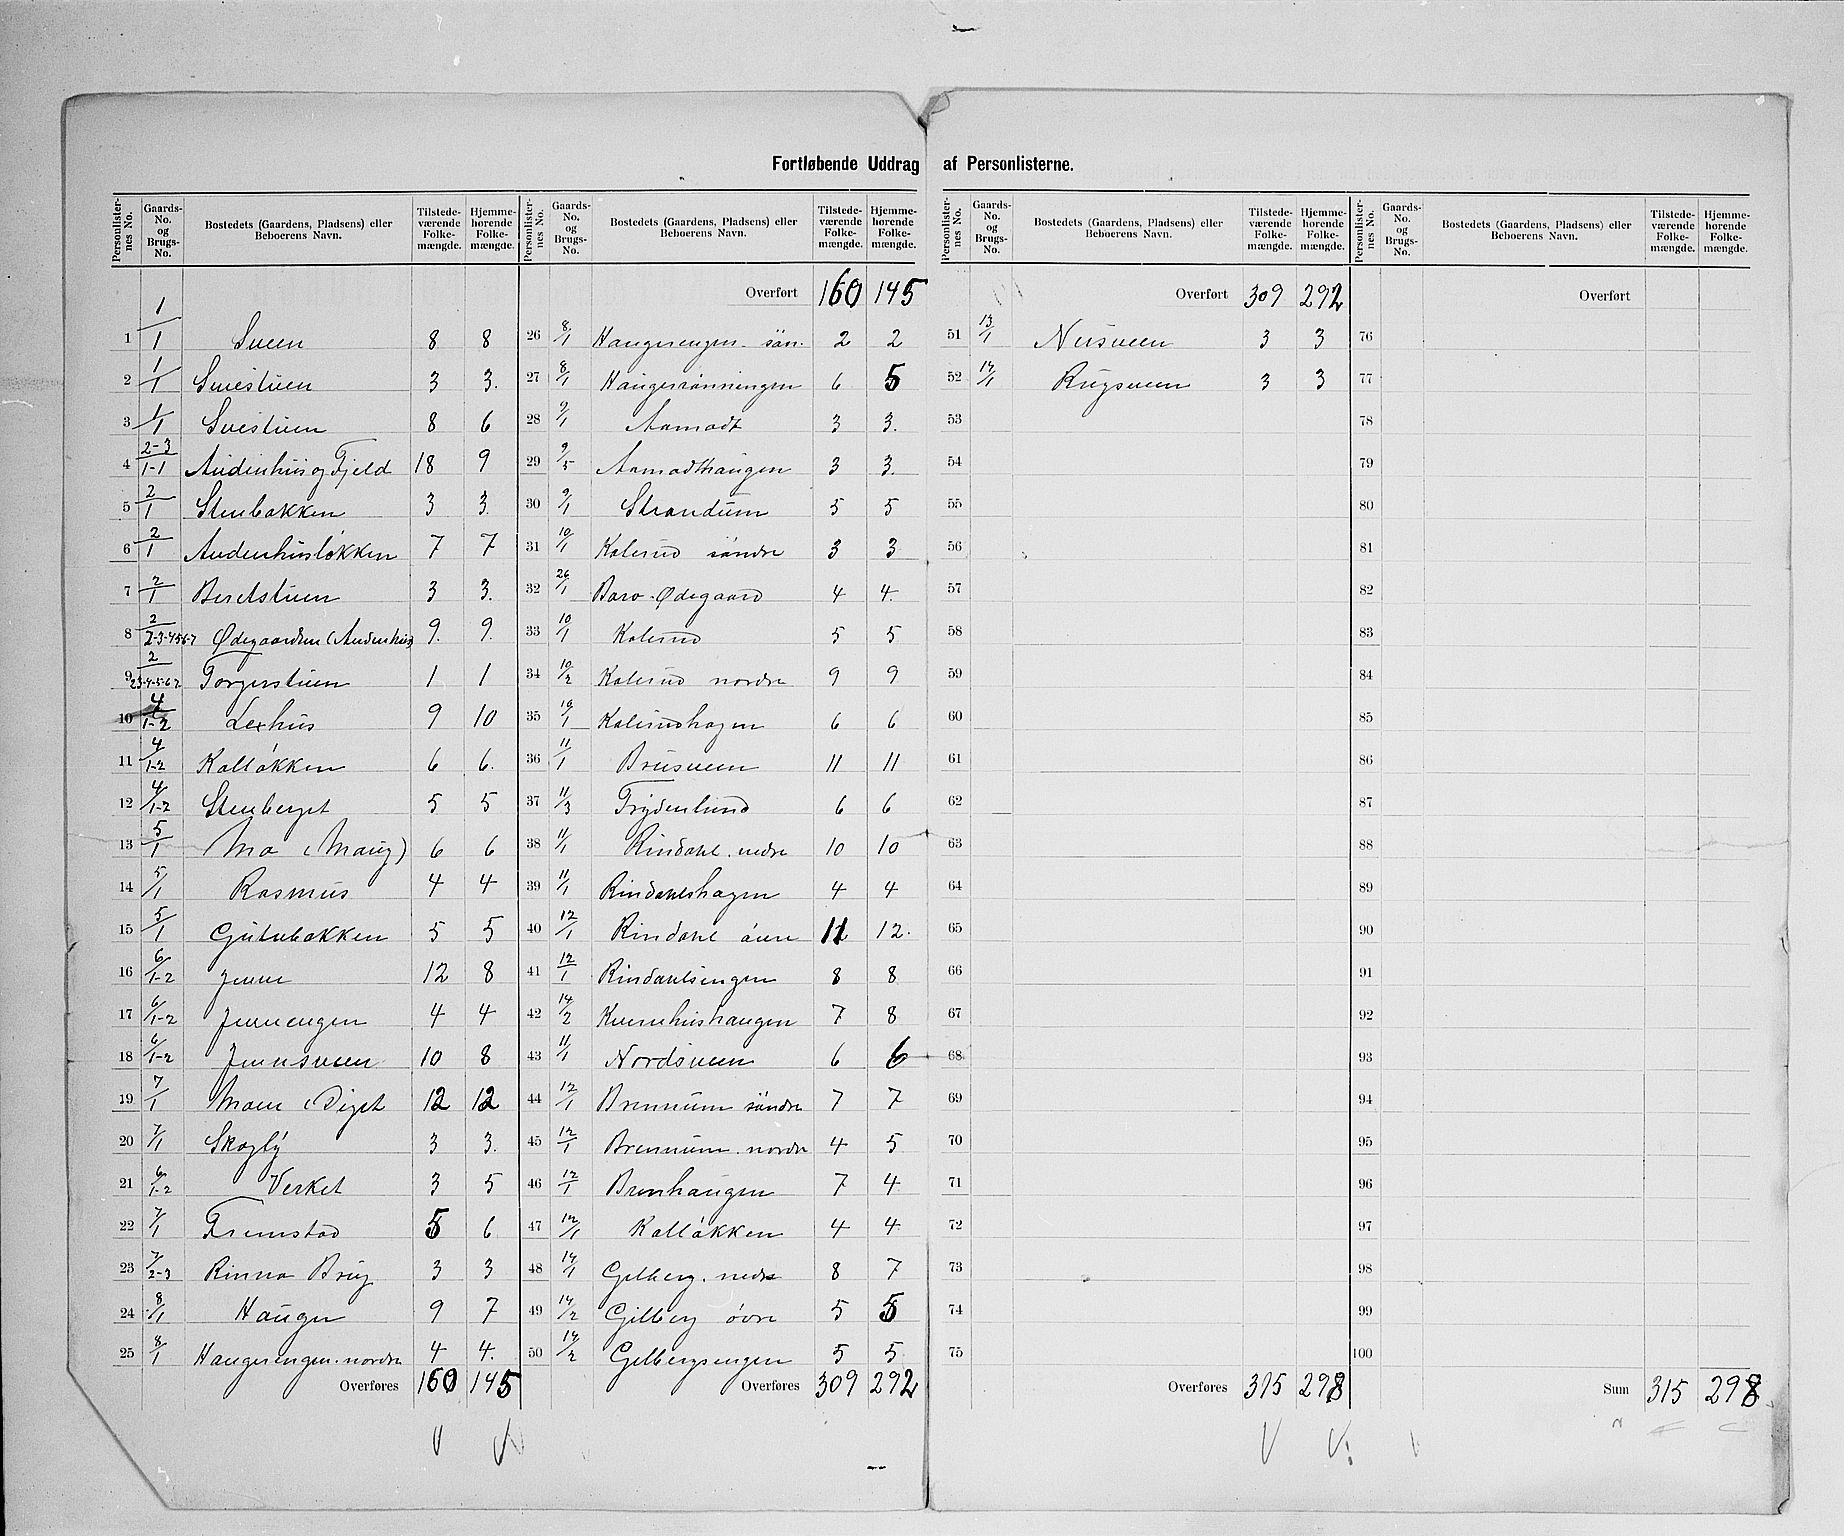 Fortløbende Uddrag af Personlisterne.
Personlister-nes No. | Gaards-No. og Brugs-No. | Bostedets (Gaardens, Pladsens) eller Beboerens Navn. | Tilstede-værende Folke-mængde. | Hjemme-hørende Folke-mængde.
1 | 1/1 | Sveen | 8 | 8
2 | 1/1 | Sveistuen | 3 | 3.
3 | 1/1 | Sveistuen | 8 | 6
4 | 2-3/1-1 | Audenhus og Fjeld | 18 | 9
5 | 2/1 | Stenbakken | 3 | 3.
6 | 2/1 | Audenhusløkken | 7 | 7
7 | 2/1 | Beretstuen | 3 | 3.
8 | 2/2-3-4-5-6-7 | Ødegaarden (Audenhus) | 9. | 9.
9 | 2/2-3-4-5-6-7 | Torgerstuen | 1 | 1
10 | 4/1-2 | Lexhus | 9 | 10
11 | 4/1-2 | Kalløkken | 6 | 6.
12 | 4/1-2 | Stenberget | 5 | 5
13 | 5/1 | Mo (Maug) | 6 | 6
14 | 5/1 | Rasmus | 4 | 4
15 | 5/1 | Gutubakken | 5 | 5
16 | 6/1-2 | Jevne | 12 | 8
17 | 6/1-2 | Jevneengen | 4 | 4
18 | 6/1-2 | Jevnesveen | 10 | 8
19 | 7/1 | Moen (Diget | 12 | 12
20 | 7/1 | Skogly | 3 | 3.
21 | 6/1-2 | Verket | 3 | 5
22 | 7/1 | Fremstad | 5 | 6
23 | 7/2-3 | Rinna Brug | 3 | 3
24 | 8/1 | Haugen | 9 | 7
25 | 8/1 | Haugerengen. nordre | 4 | 4.
Overføres | 160 | 145
Personlister-nes No. | Gaards-No. og Brugs-No. | Bostedets (Gaardens, Pladsens) eller Beboerens Navn. | Tilstede-værende Folke-mængde. | Hjemme-hørende Folke-mængde.
Overført | 160 | 145
26 | 8/1 | Haugerengen. søn. | 2 | 2
27 | 8/1 | Haugerrønningen | 6 | 5
28 | 9/1 | Aamodt | 3 | 3.
29 | 9/5 | Aamodthaugen | 3 | 3.
30 | 9/1 | Strandum | 5 | 5
31 | 10/1 | Kolerud søndre | 3 | 3
32 | 26/1 | Baro-Ødegaard | 4 | 4.
33 | 10/1 | Kolerud | 5 | 5
34 | 10/2 | Kolerud nordre | 9 | 9
35 | 10/1 | Kolerudhagen | 6 | 6
36 | 11/1 | Brusveen | 11 | 11
37 | 11/3 | Frydenlund | 6 | 6
38 | 11/1 | Rindahl. nedre | 10 | 10
39 | 11/1 | Rindahlshagen | 4 | 4
40 | 12/1 | Rindahl øvre | 11 | 12.
41 | 12/1 | Rindahlsengen | 8 | 8
42 | 14/2 | Kvernhushaugen | 7 | 8
43 | 11/1 | Nordsveen | 6 | 6
44 | 12/1 | Brennum søndre | 7 | 7
45 | 12/1 | Brennum. nordre | 4 | 5
46 | 12/1 | Brenhaugen | 7 | 4
47 | 12/1 | Kalløkken | 4 | 4
48 | 14/1 | Gilberg. nedre | 8 | 7
49 | 14/2 | Gilberg øvre | 5 | 5
50 | 14/2 | Gilbergsengen | 5 | 5
Overføres | 309 | 292
Personlister-nes No. | Gaards-No. og Brugs-No. | Bostedets (Gaardens, Pladsens) eller Beboerens Navn. | Tilstede-værende Folke-mængde. | Hjemme-hørende Folke-mængde.
Overført | 309 | 292
51 | 13/1 | Nusveen | 3 | 3
52 | 14/1 | Rugsveen | 3 | 3
53
54
55
56
57
58
59
60
61
62
63
64
65
66
67
68
69
70
71
72
73
74
75
Overføres | 315 | 298
Personlister-nes No. | Gaards-No. og Brugs-No. | Bostedets (Gaardens, Pladsens) eller Beboerens Navn. | Tilstede-værende Folke-mængde. | Hjemme-hørende Folke-mængde.
Overført
76
77
78
79
80
81
82
83
84
85
86
87
88
89
90
91
92
93
94
95
96
97
98
99
100
Sum | 315 | 298